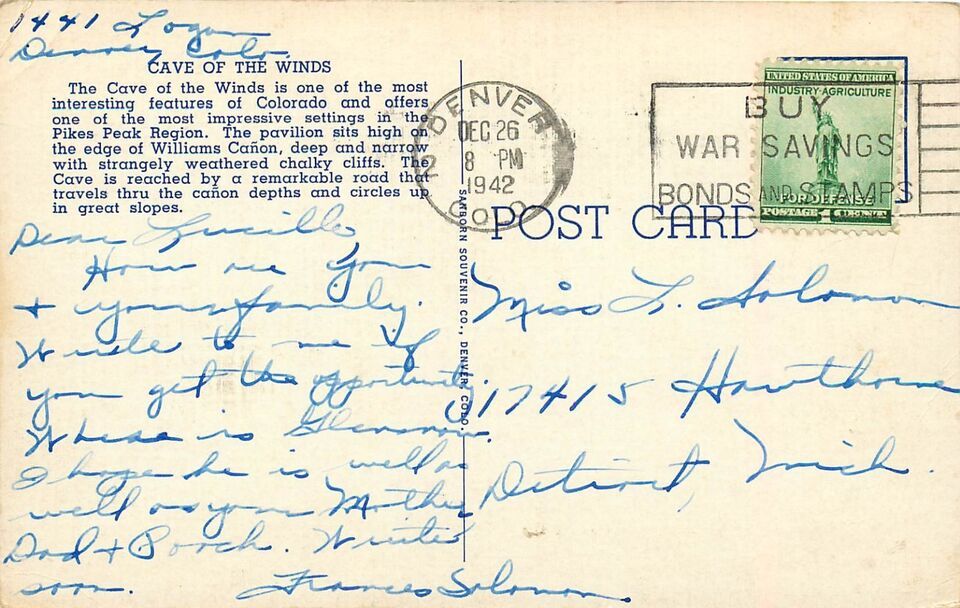 1441 Logan
Denver, Colo.
CAVE OF THE WINDS
The Cave of the Winds is one of the most
interesting features of Colorado and offers
one of the most impressive settings in the
Pikes Peak Region. The pavilion sits high on
the edge of Williams Cañon, deep and narrow
with strangely weathered chalky cliffs. The
Cave is reached by a remarkable road that
travels thru the cañon depths and circles up
in great slopes.
Dear Lucille,
How are you
+ your family.
Write to me if
you get the opportunity.
Where is
I hope he is well as
well as your Mother,
Dad + Pooch. Write
soon.
Frances Solomon.
SANBORN SOUVENIR CO., DENVER, COLO.
DENVER
COLO
DEC 26
8 PM
1942
BUY
WAR SAVINGS
BONDS AND STAMPS
UNITED STATES OF AMERICA
INDUSTRY·AGRICULTURE
FOR DEFENSE
POSTAGE 1 CENT
POST CARD
Miss L. Solomon
17415 Hawthorne
Detroit, Mich.